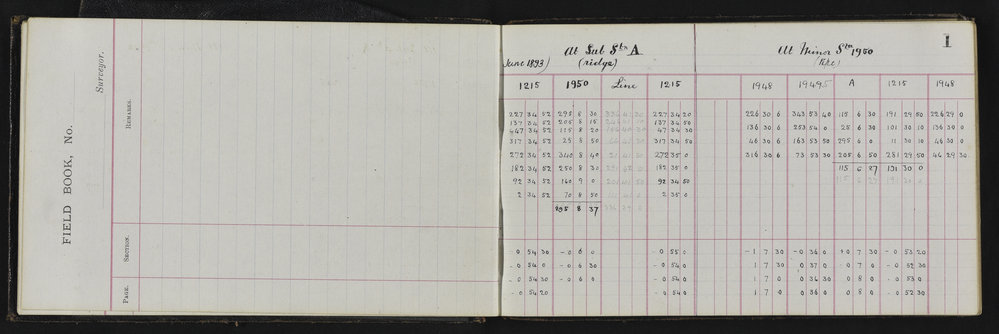 FIELD BOOK, No.
Surveyor.
REMARKS.
SECTION.
PAGE.
1
At Sub Stn A
At Minor Stn 1950
June 1893)
(ridge)
1215 1950 Line 1215 1948 1949.5 A 1215 1948
227 34 52 295 8 30 227 34 20 226 30 6 343 53 40 115 6 30 191 29 50 226 29 0
137 34 52 205 8 15 137 34 50 136 30 6 253 54 0 25 6 30 101 30 10 136 30 0
447 34 52 115 8 20 47 34 30 46 30 6 163 53 50 295 6 0 11 30 10 46 30 0
317 34 52 25 8 50 317 34 50 316 30 6 73 53 30 205 6 50 281 29 50 46 29 30
272 34 52 340 8 40 272 35 0
115 6 27 131 30 0
182 34 52 250 8 30 182 35 0
92 34 52 160 9 0 92 34 50
2 34 52 70 8 50 2 35 0
295 8 37
- 0 54 30 - 0 6 0 - 0 55 0 - 1 7 30 - 0 36 0 + 0 7 30 - 0 53 20
- 0 54 0 - 0 6 30 - 0 54 0 1 7 30 0 37 0 - 0 7 0 - 0 52 30
- 0 54 30 - 0 6 0 - 0 54 0 1 7 0 0 36 30 0 8 0 - 0 53 0
- 0 54 20 - 0 54 0 1 7 0 0 36 0 0 8 0 - 0 52 30